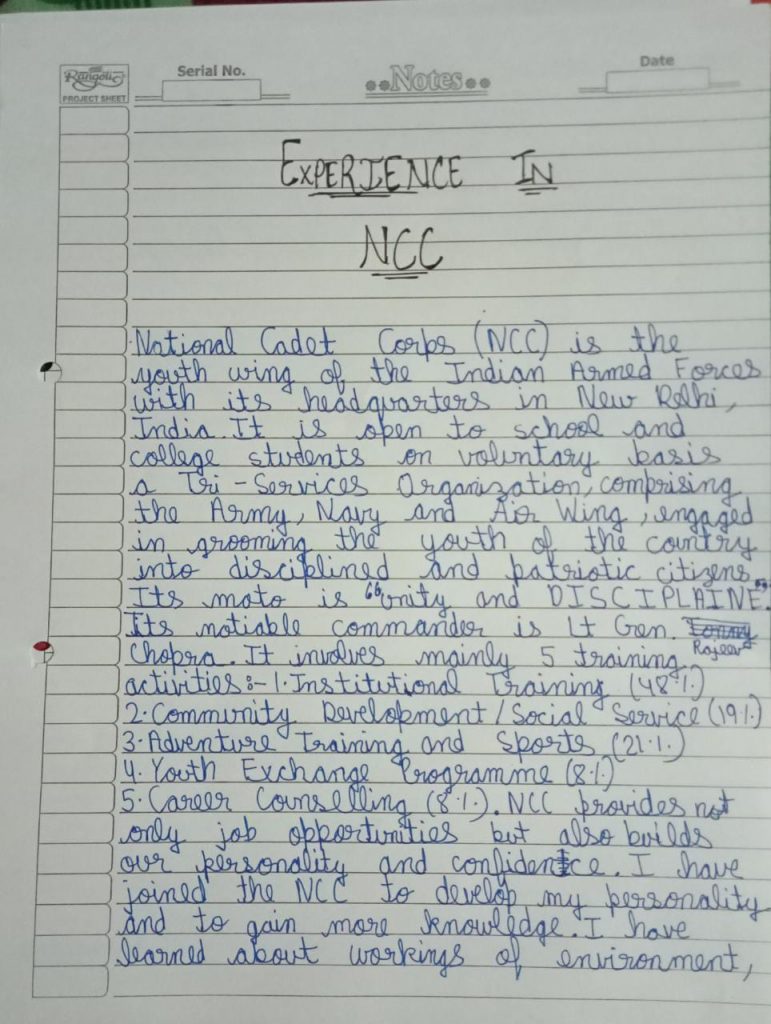 Rangoli
PROJECT SHEET
Serial No.
Notes
Date
EXPERIENCE IN
NCC
National Cadet Corps (NCC) is the
youth wing of the Indian Armed Forces
with its headquarters in New Delhi,
India. It is open to school and
college students on voluntary basis
a Tri-Services Organization, comprising
the Army, Navy and Air Wing, engaged
in grooming the youth of the country
into disciplined and patriotic citizens.
Its moto is "unity and DISCIPLAINE".
Its notiable commander is Lt Gen. Rajeev
Chopra. It involves mainly 5 training
activities:- 1. Institutional Training (48%)
2. Community Development/Social Service (19%)
3. Adventure Training and Sports (21%)
4. Youth Exchange Programme (8%)
5. Career Counselling (8%). NCC provides not
only job opportunities but also builds
our personality and confidence. I have
joined the NCC to develop my personality
and to gain more knowledge. I have
learned about workings of environment,